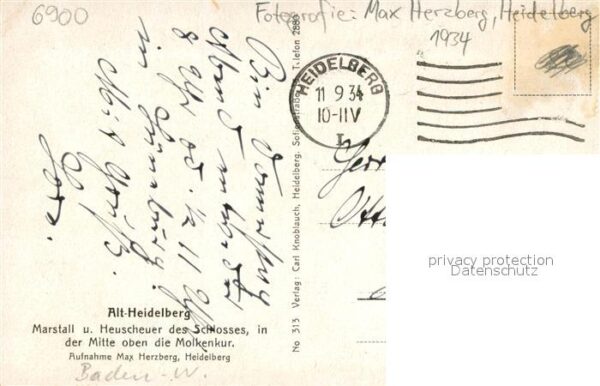 6900
Fotografie: Max Herzberg, Heidelberg
1934
HEIDELBERG
11 9 34
10-11V
I
Bin
Abend
8 Uhr od. 1/2 11 Uhr
in
Mit Gruß.
Herr
Otto
No 313 Verlag: Carl Knoblauch, Heidelberg, Sofienstraße Telefon 2880
Alt-Heidelberg
Marstall u. Heuscheuer des Schlosses, in
der Mitte oben die Molkenkur.
Aufnahme Max Herzberg, Heidelberg
Baden-W.
privacy protection
Datenschutz